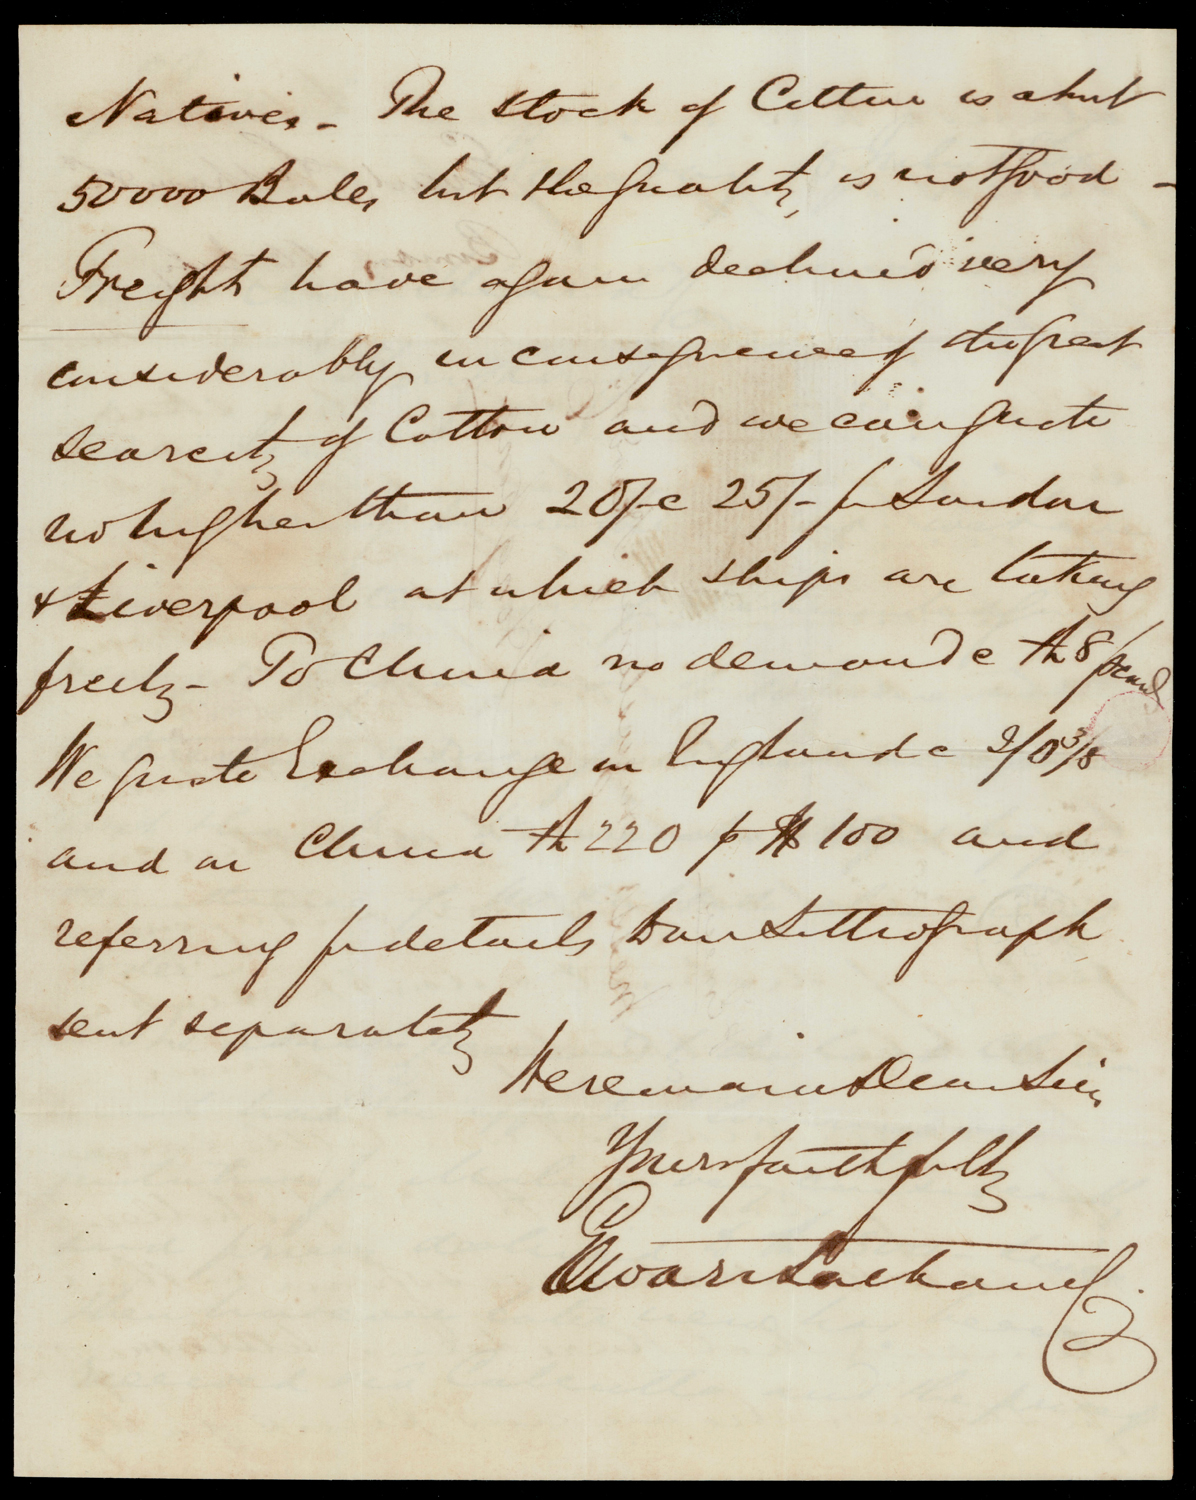 Natives. - The Stock of Cotton is about
50000 Bales, but the quality, is not good -
Freight have again declined very
considerably in consequence of the great
scarcity of Cotton and we can quote
no higher than 20/- @ 25/- for London
& Liverpool at which ships are taking
freely - To China no demand @ Rs 8 p Candy
We quote Exchange on England @ 2/0 3/8
and on China Rs 220 p $ 100 and
referring for details to our Lithograph
sent separately
We remain Dear Sirs,
Yours faithfully